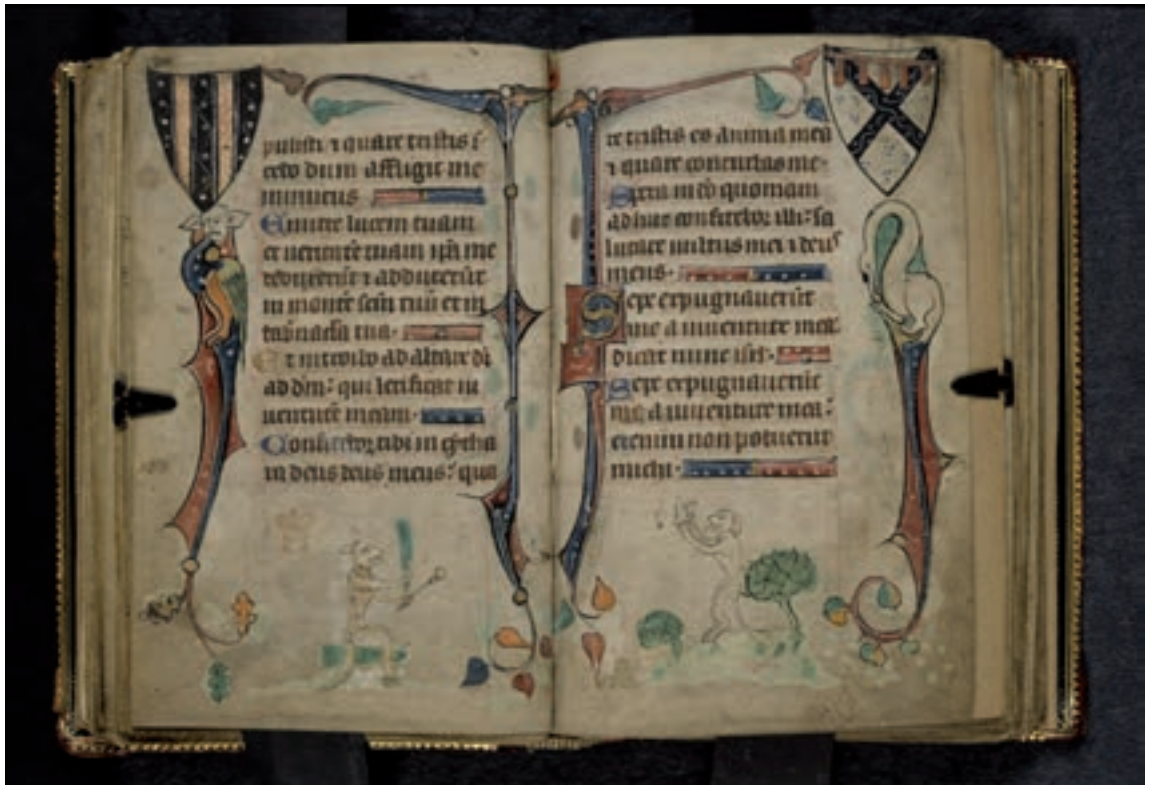 pulisti ⁊ quare tristis i
cedo dum affligit me
inimicus
Emitte lucem tuam
et ueritatē tuam ip̄a me
deduxerūt ⁊ adduxerūt
in montē scm̄ tuū et in
tab̄nacl̄a tua.
Et introibo ad altare di
ad dm̄: qui letificat iu
uentutē meam.
Confitebor tibi in cythā
ra deus deus meus: qua
re tristis es anima mea
⁊ quare conturbas me.
Spera in dō quoniam
adhuc confitebor illi: sa
lutare uultus mei ⁊ deus
meus.
Sepe expugnauerūt
me a iuuentute mea
dicat nunc isrl.
Sepe expugnauerūt
me a iuuentute mea:
etenim non potuerūt
michi.